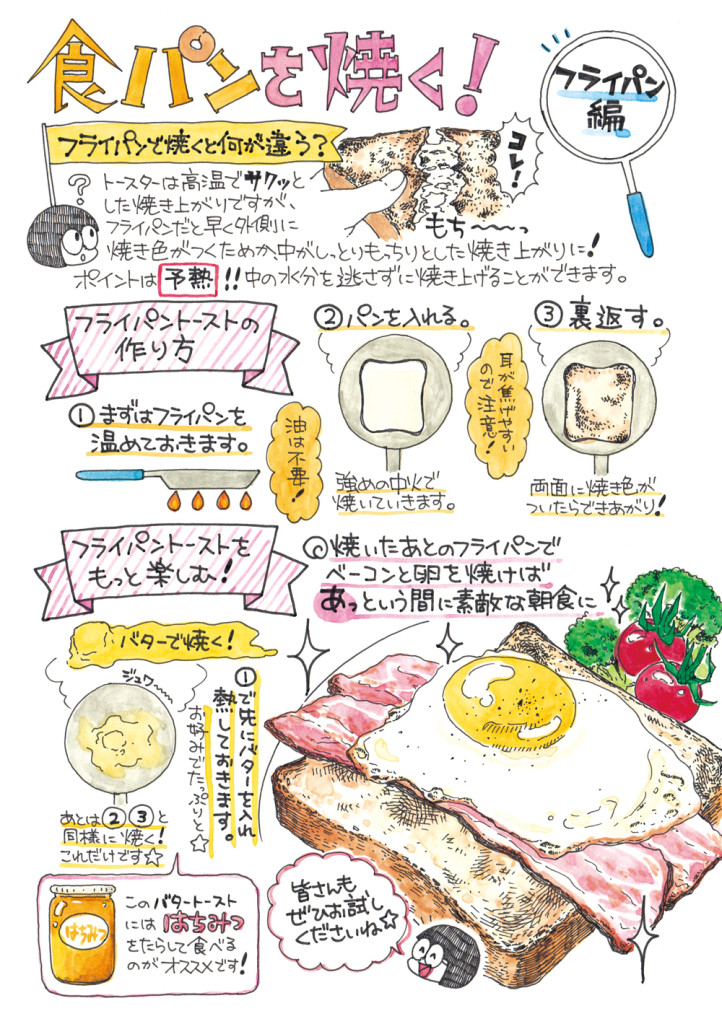 食パンを焼く!
フライパン
編
フライパンで焼くと何が違う?
コレ!
もち〜〜〜っ
?
トースターは高温でサクッと
した焼き上がりですが、
フライパンだと早く外側に
焼き色がつくためか、中がしっとりもっちりとした焼き上がりに!
ポイントは予熱!!中の水分を逃さずに焼き上げることができます。
フライパントーストの
作り方
①まずはフライパンを
温めておきます。
油は不要!
②パンを入れる。
強めの中火で
焼いていきます。
耳が焦げやすい
ので注意!
③裏返す。
両面に焼き色が
ついたらできあがり!
フライパントーストを
もっと楽しむ!
バターで焼く!
ジュワ〜
①で先にバターを入れ
熱しておきます。
お好みでたっぷりと☆
あとは②③と
同様に焼く!
これだけです☆
はちみつ
このバタートースト
にははちみつ
をたらして食べる
のがオススメです!
焼いたあとのフライパンで
ベーコンと卵を焼けば
あっという間に素敵な朝食に
皆さんも
ぜひお試し
くださいね☆